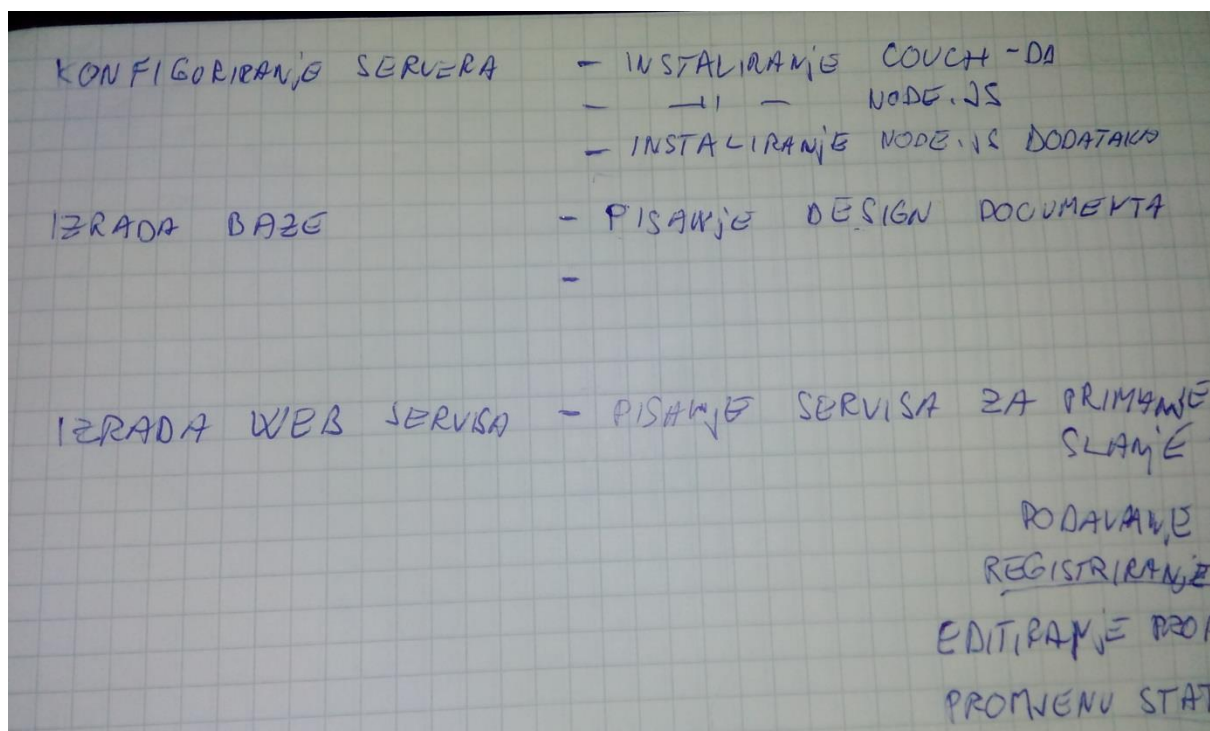 KONFIGURIRANJE SERVERA - INSTALIRANJE COUCH-DB
- -11- NODE.JS
- INSTALIRANJE NODE.JS DODATAKA
IZRADA BAZE - PISANJE DESIGN DOCUMENTA
-
IZRADA WEB SERVISA - PISANJE SERVISA ZA PRIMANJE
SLANJE
DODAVANJE
REGISTRIRANJE
EDITIRANJE
PROMJENU STAT